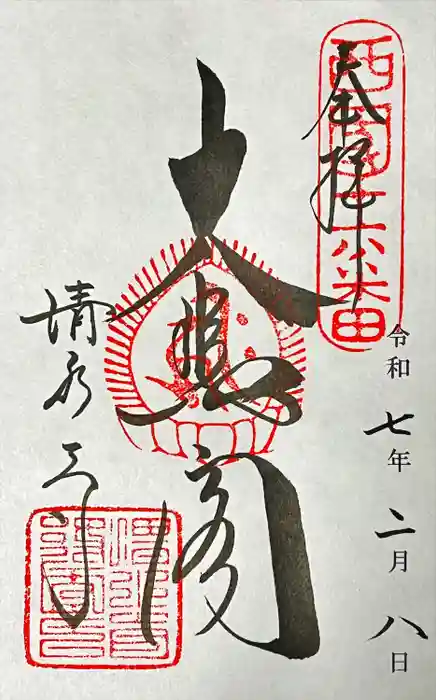 奉拝
西国十六番
令和七年二月八日
大悲閣
清水寺